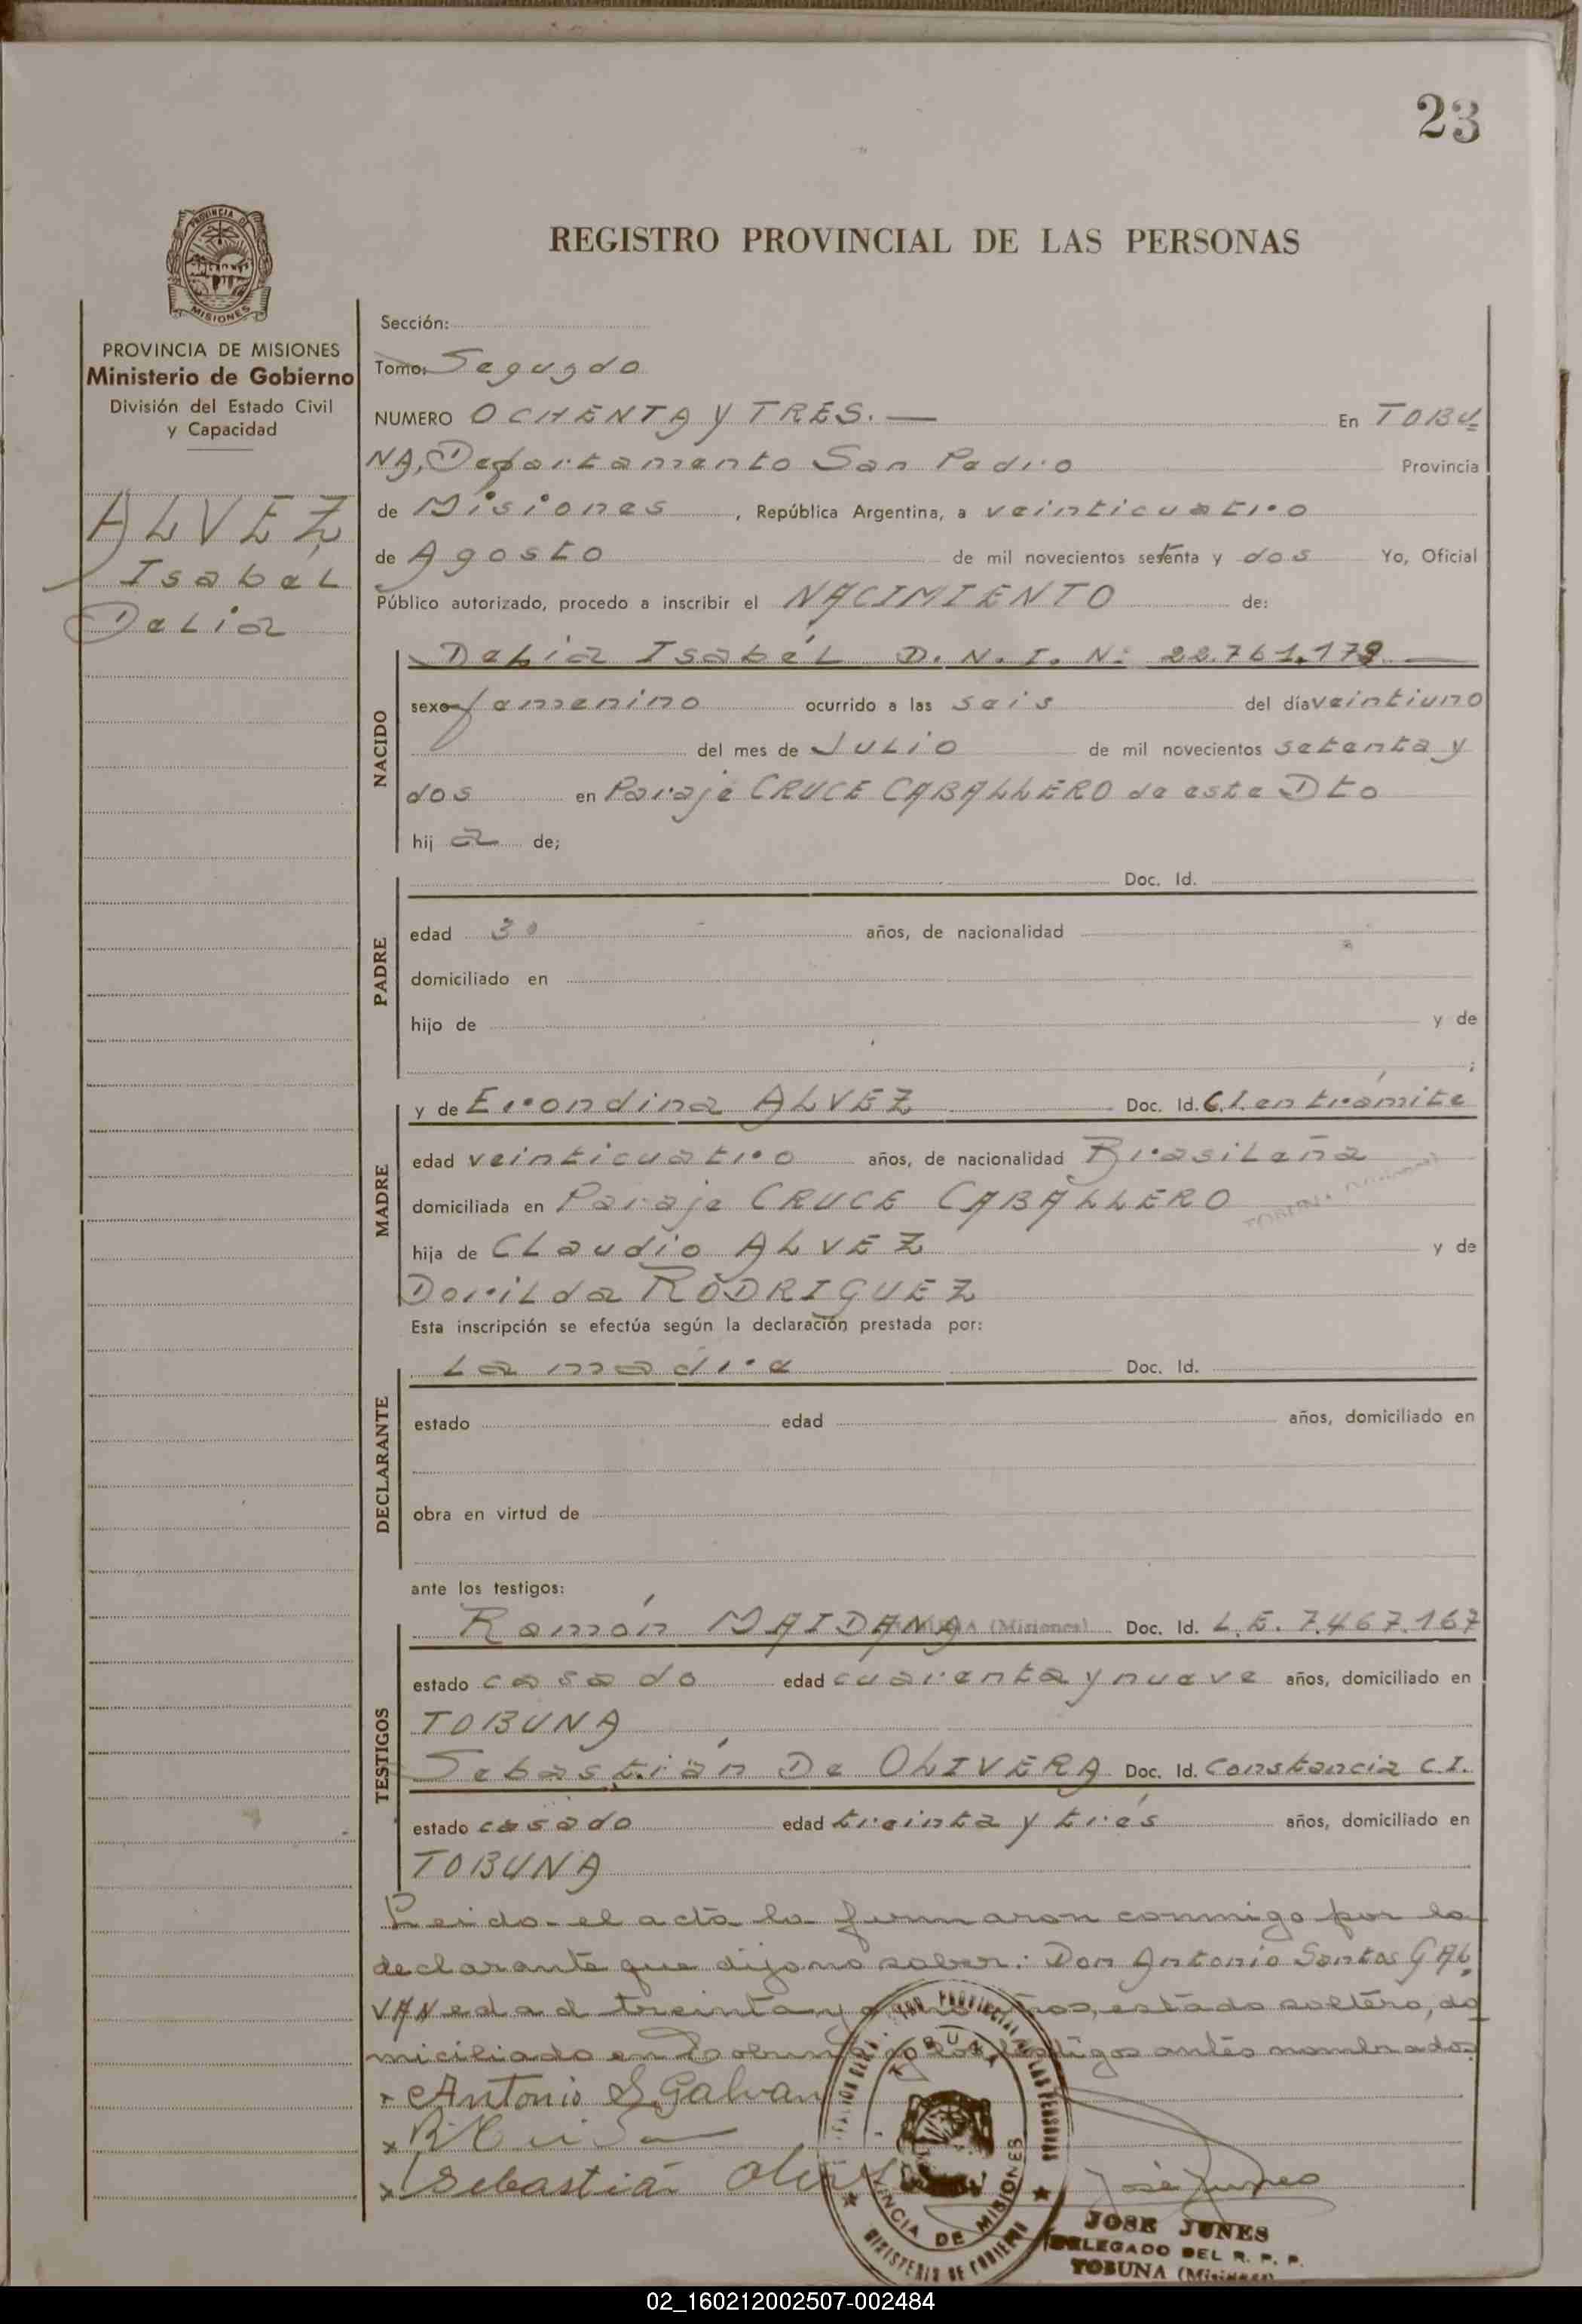 23
REGISTRO PROVINCIAL DE LAS PERSONAS
PROVINCIA DE MISIONES
PROVINCIA DE MISIONES
Ministerio de Gobierno
División del Estado Civil
y Capacidad
ALVEZ
Isabél
Delia
Sección:
Tomo: Segundo
NUMERO OCHENTA y TRES. — En TOBU=
NA, Departamento San Pedro Provincia
de Misiones, República Argentina, a veinticuatro
de Agosto de mil novecientos setenta y dos Yo, Oficial
Público autorizado, procedo a inscribir el NACIMIENTO de:
NACIDO
Delia Isabél D.N.I. N: 22.761.179 —
sexo femenino ocurrido a las seis del día veintiuno
del mes de Julio de mil novecientos setenta y
dos en Paraje CRUCE CABALLERO de este Dto
hij a de;
PADRE
Doc. Id.
edad 30 años, de nacionalidad
domiciliado en
hijo de y de
;
MADRE
y de Erondina ALVEZ Doc. Id. C.I. en trámite
edad veinticuatro años, de nacionalidad Brasileña
domiciliada en Paraje CRUCE CABALLERO
hija de Claudio ALVEZ y de
Dorilda RODRIGUEZ
Esta inscripción se efectúa según la declaración prestada por:
DECLARANTE
La madre Doc. Id.
estado edad años, domiciliado en
obra en virtud de
ante los testigos:
TESTIGOS
Ramón MAIDANA (Misiones) Doc. Id. L.E. 7.467.167
estado casado edad cuarenta y nueve años, domiciliado en
TOBUNA
Sebastián De OLIVERA Doc. Id. Constancia C.I.
estado casado edad treinta y trés años, domiciliado en
TOBUNA
Leido el acta la firmaron conmigo por la
declarante que dijo no saber: Don Antonio Santos GAL
VAN edad treinta y años, estado soltero, do
miciliado en Tobuna y los testigos antes nombrados
Antonio S. Galvan
x
x Sebastián
TOBUNA
PROVINCIA DE MISIONES
MINISTERIO DE GOBIERNO
José Junes
JOSE JUNES
DELEGADO DEL R. P. P.
TOBUNA (Misiones)
02_160212002507-002484